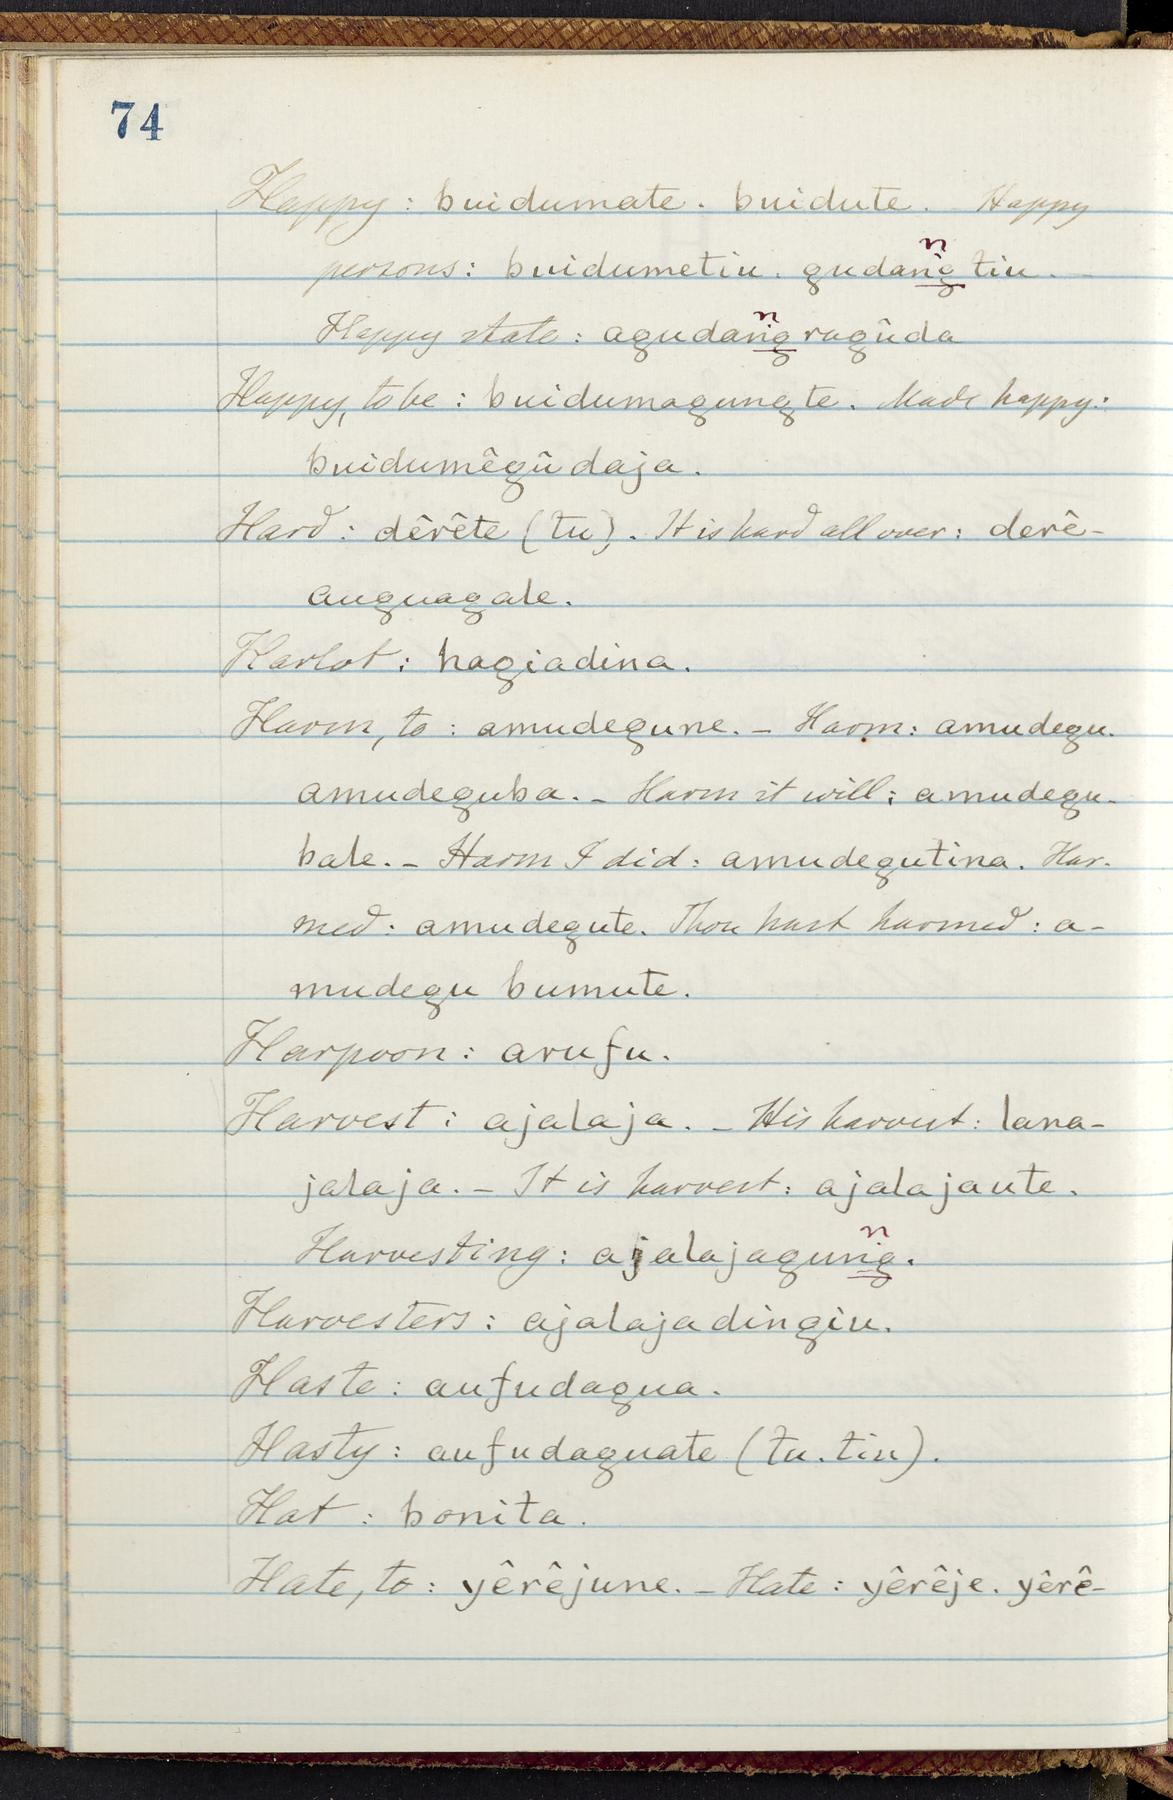 74
Happy : buidumate. buidute. Happy
n
persons : buidumetiu. gudaṅg tiu. —
n
Happy state : agudaṅgragûda
Happy, to be : buidumagungte. Made happy:
buidumêgûdaja.
Hard : dêrête (tu). It is hard all over: derê-
auguagale.
Harlot : hagiadina.
Harm, to : amudegune. – Harm: amudegu.
amudeguba. – Harm it will; amudegu-
bale. – Harm I did: amudegutina. Har-
med: amudegute. Thou hast harmed: a-
mudegu bumute.
Harpoon : arufu.
Harvest : ajalaja. – His harvest: lana-
jalaja. – It is harvest: ajalajaute.
n
Harvesting : ajalajaguṅg.
Harvesters : ajalajadingiu.
Haste : aufudagua.
Hasty : aufudaguate (tu. tiu).
Hat : bonita.
Hate, to : yêrêjune. – Hate : yêrêje. yêrê-